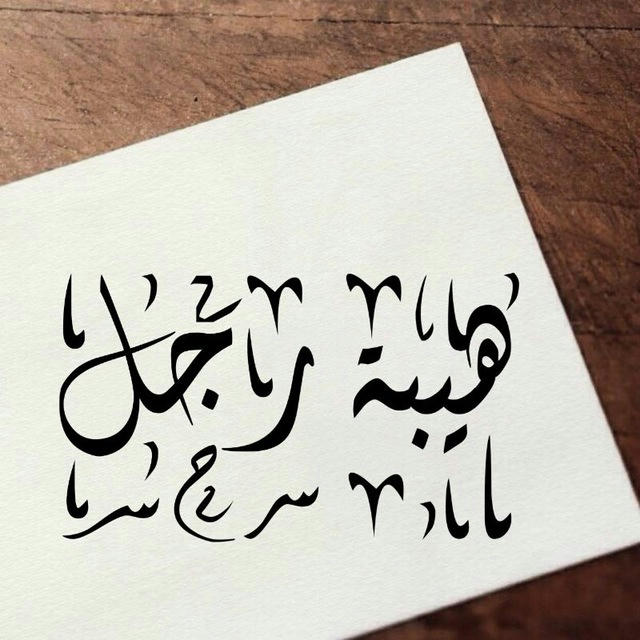 هيبة رجل